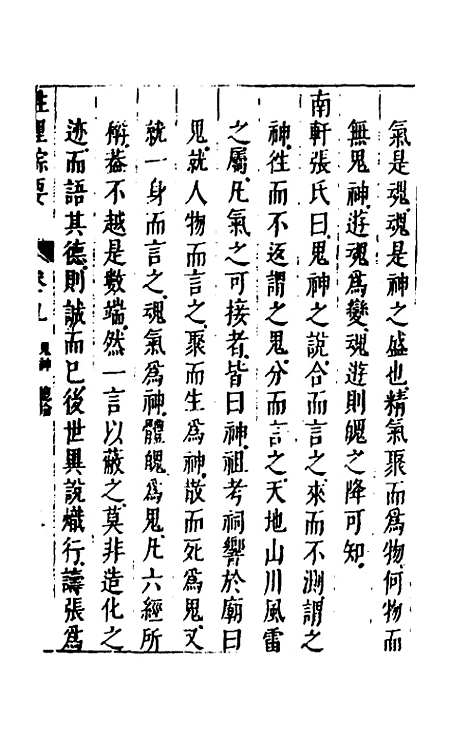 氣是魂魂是神之盛也精氣聚而爲物何物而
無鬼神遊魂爲變魂遊則魄之降可知
南軒張氏曰鬼神之說合而言之來而不測謂之
神徃而不返謂之鬼分而言之天地山川風雷
之屬凡氣之可接者皆曰神祖考祠饗於廟曰
鬼就人物而言之聚而生爲神散而死爲鬼又
就一身而言之魂氣爲神體魄爲鬼凡六經所
稱葢不越是數端然一言以蔽之莫非造化之
迹而語其德則誠而已後世異說熾行譸張爲
性理綜要 卷十九 鬼神 總論